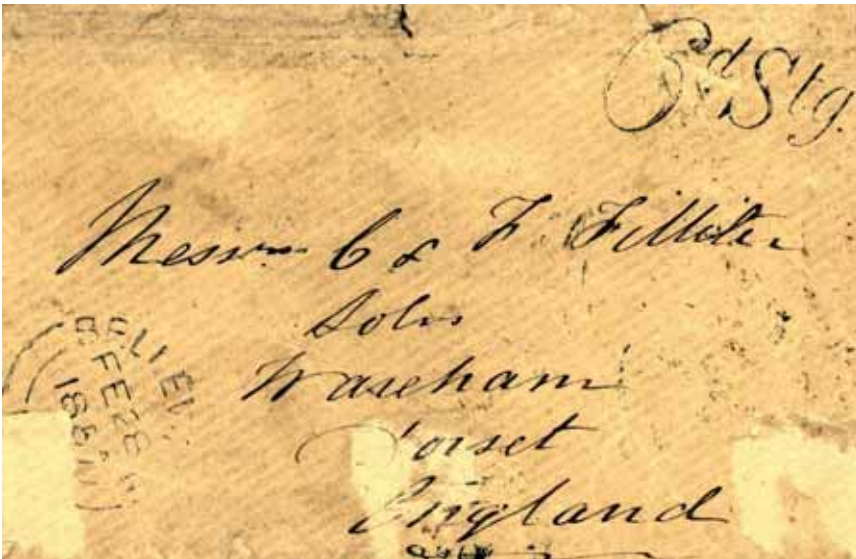 6d Stg.
Messrs C & F. Filliter
Solrs
Wareham
Dorset
England
BELLEV
FE 28